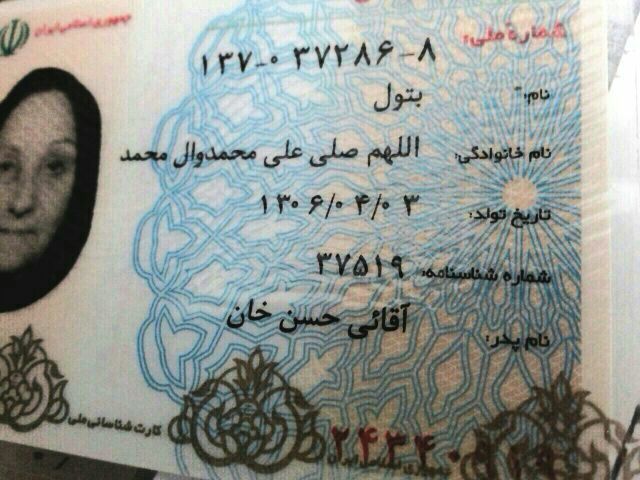 جمهوری اسلامی ایران
شماره ملی:
۱۳۷-۰۳۷۲۸۶-۸
نام: بتول
نام خانوادگی: اللهم صلی علی محمدوال محمد
تاریخ تولد: ۱۳۰۶/۰۴/۰۳
شماره شناسنامه: ۳۷۵۱۹
نام پدر: آقائی حسن خان
کارت شناسائی ملی
جمهوری اسلامی ایران